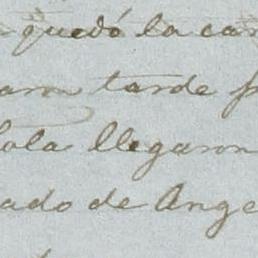 quedó la car
aron tarde p
lola llegaron
ado de Ange